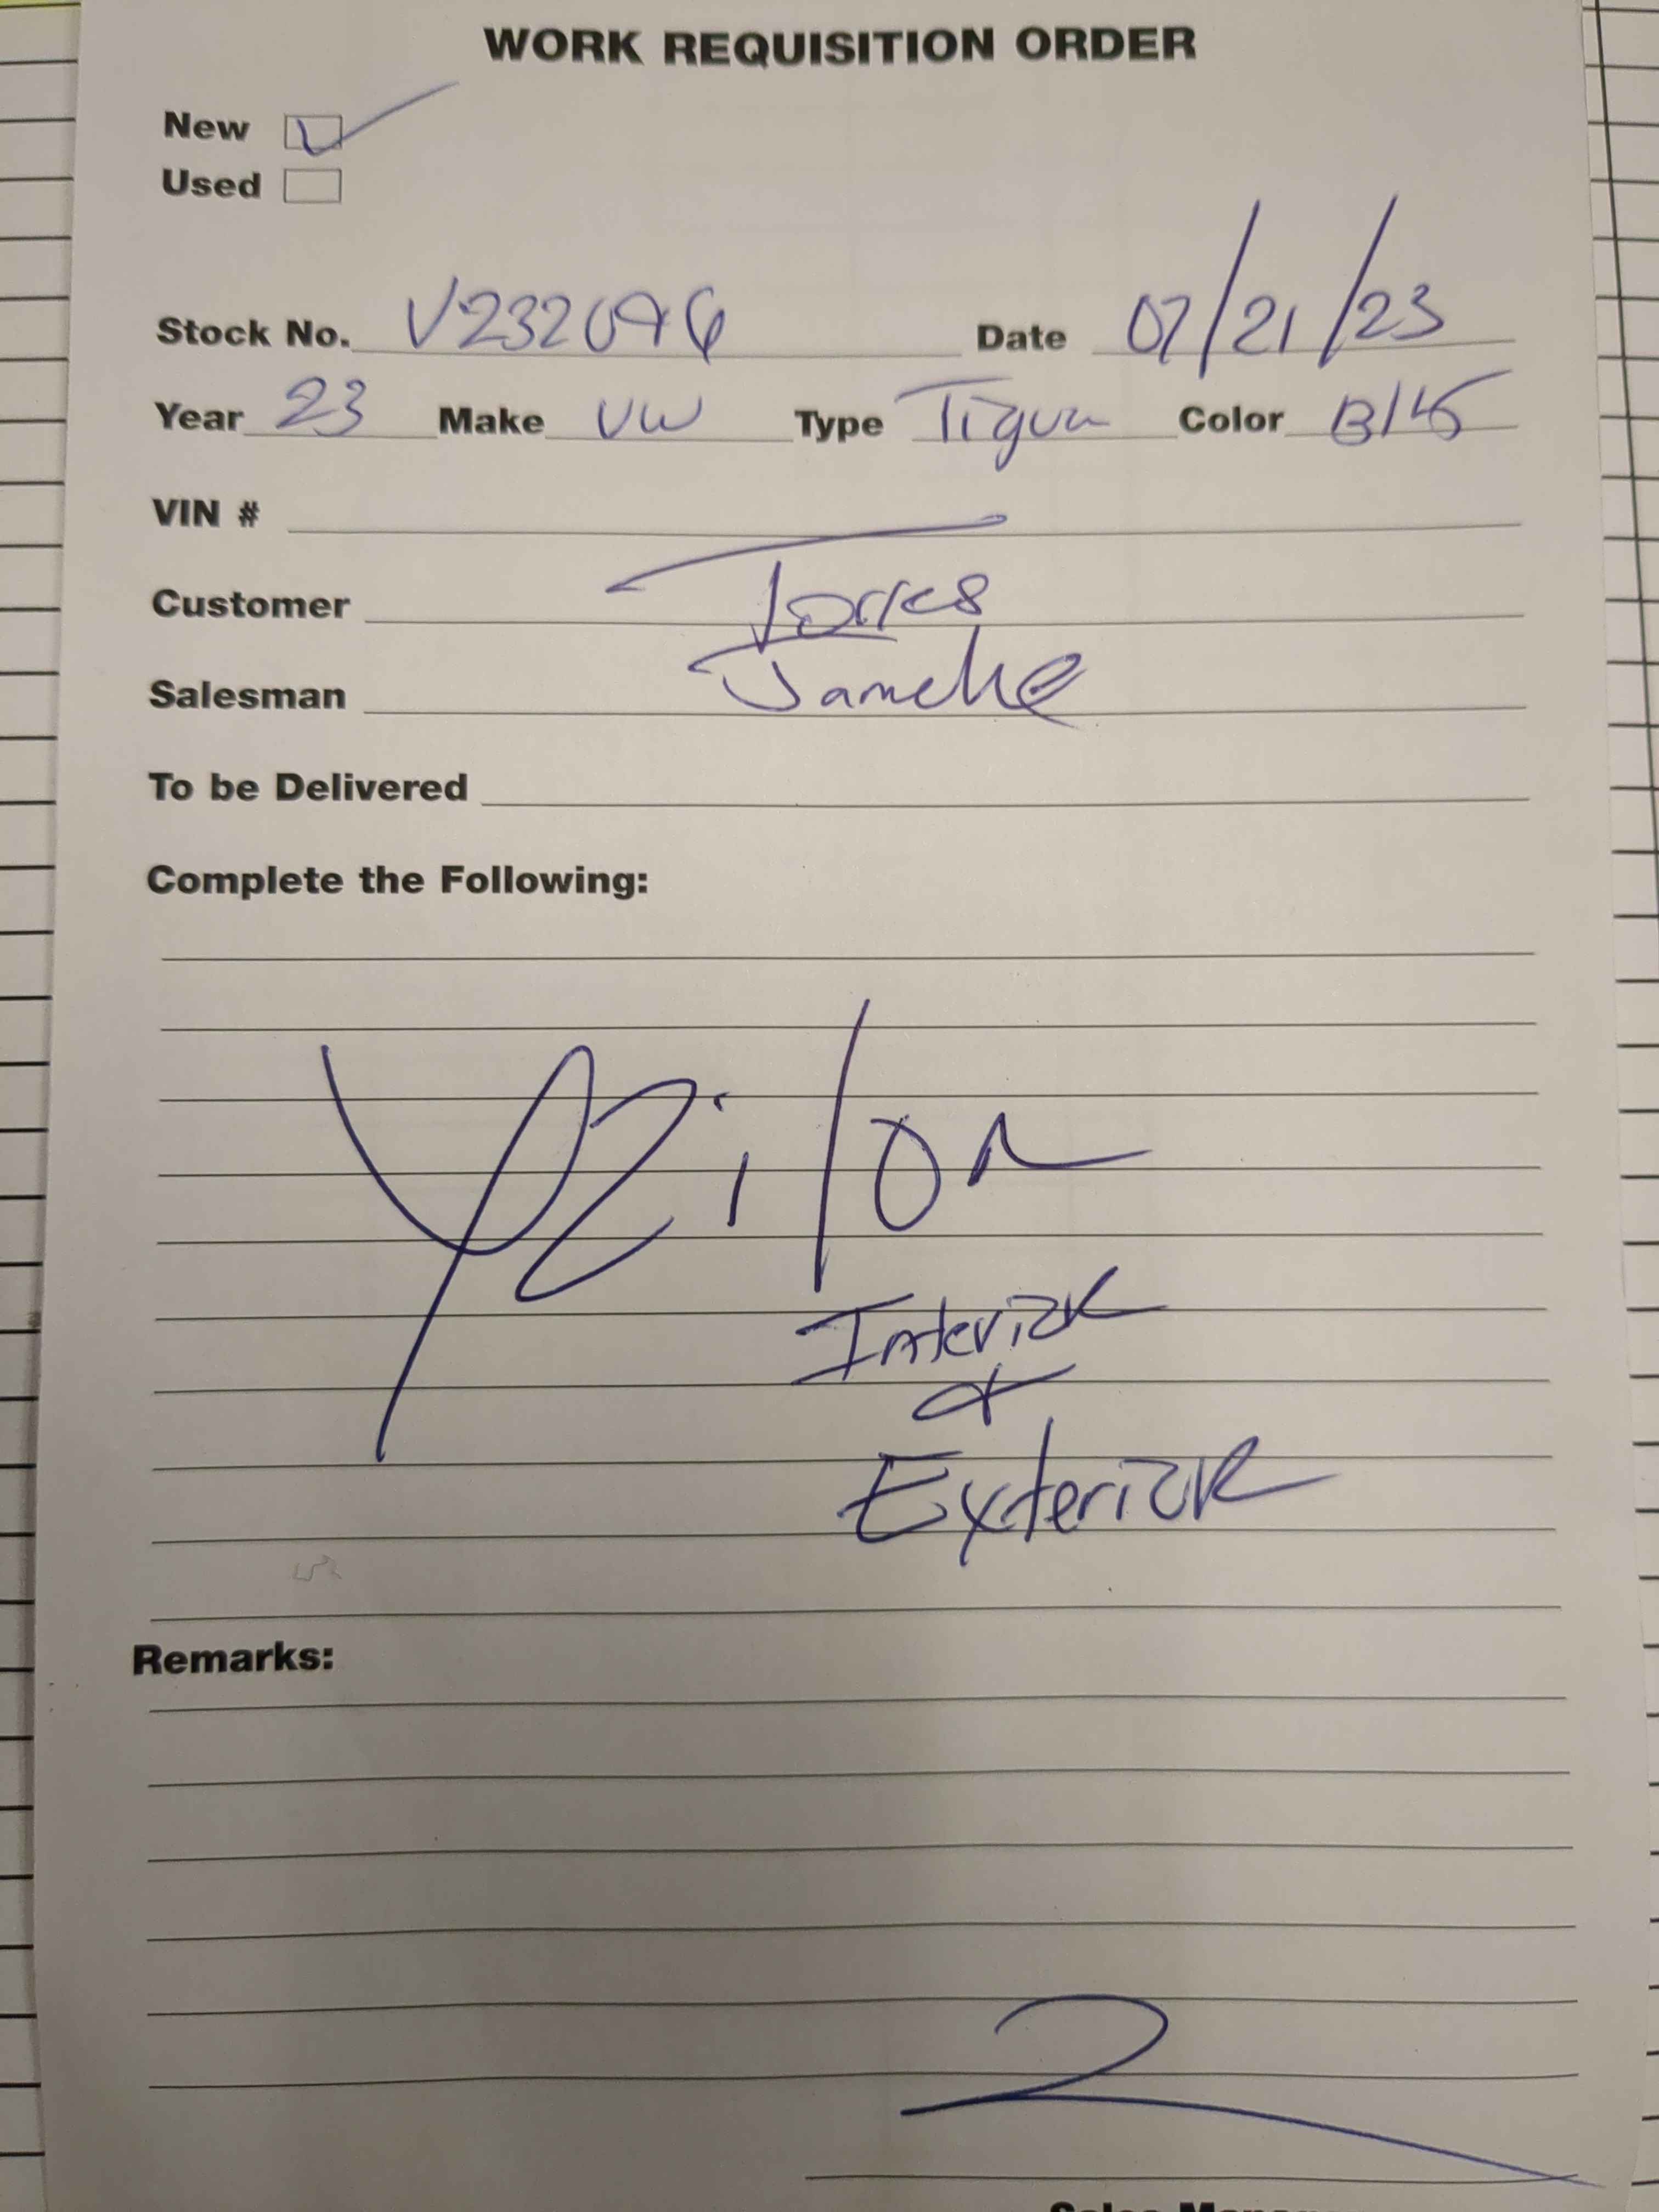 WORK REQUISITION ORDER
New ✓
Used
Stock No. V232096 Date 07/21/23
Year 23 Make VW Type Tigua Color Blk
VIN #
Customer Torres
Salesman
To be Delivered
Complete the Following:
Interior
&
Exterior
Remarks:
2